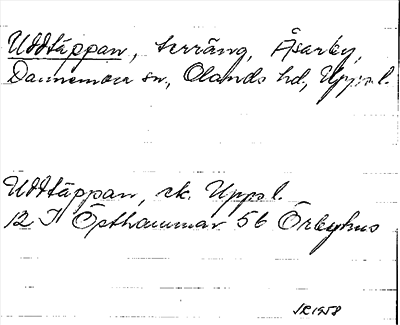 Uddtäppan, terräng, Åsarby,
Dannemora sn, Olands hd, Uppl.
Uddtäppan, ek. Uppl.
12 I Östhammar 56 Örbyhus
1958